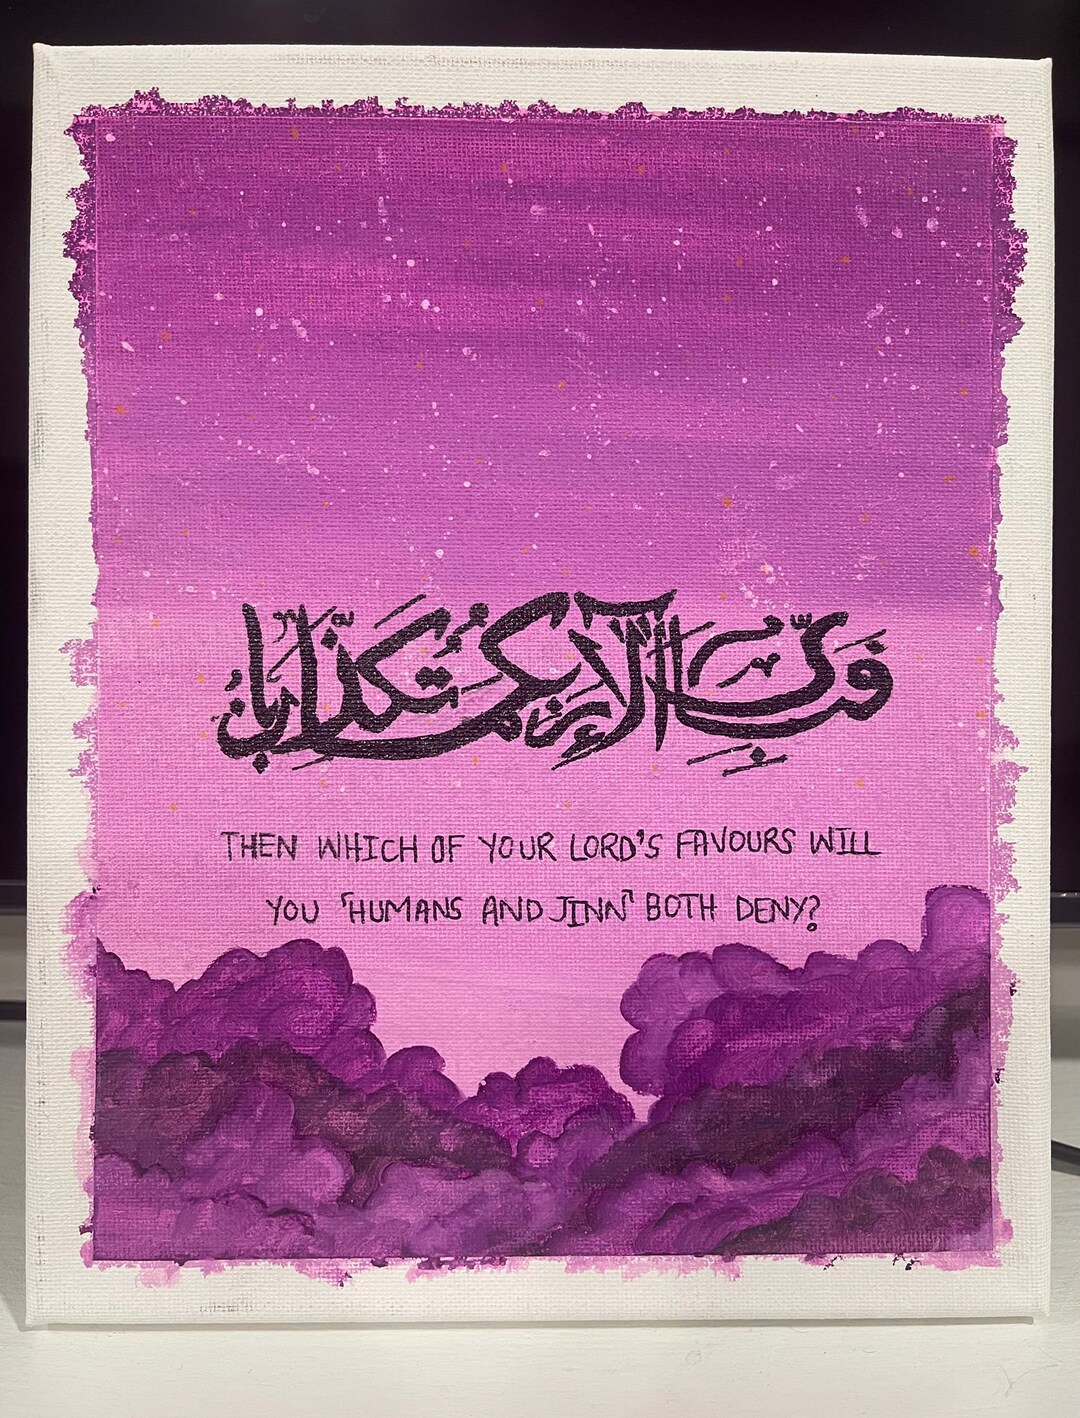 فَبِأَيِّ آلَاءِ رَبِّكُمَا تُكَذِّبَانِ
THEN WHICH OF YOUR LORD'S FAVOURS WILL
YOU ⸢HUMANS AND JINN⸣ BOTH DENY?